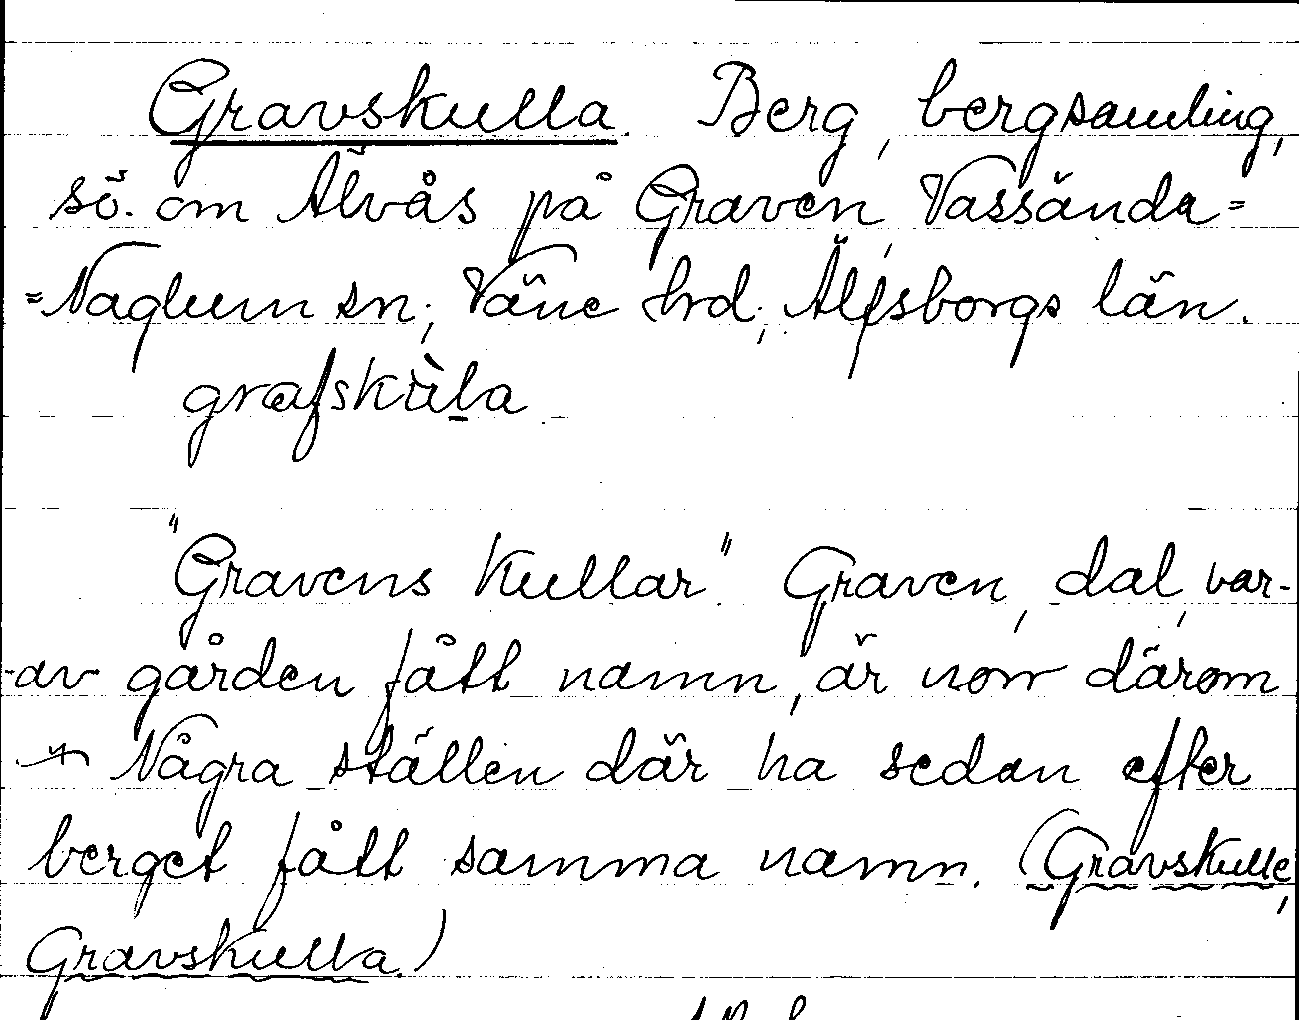 Gravskulla. Berg, bergsamling,
sö. om Älvås på Graven, Vassända=
=Naglum sn; Väne hrd; Älfsborgs län.
grafskùla
"Gravens kullar". Graven, dal, var-
-av gården fått namn, är norr därom
Några ställen där ha sedan efter
berget fått samma namn. (Gravskulle,
Gravskulla.)